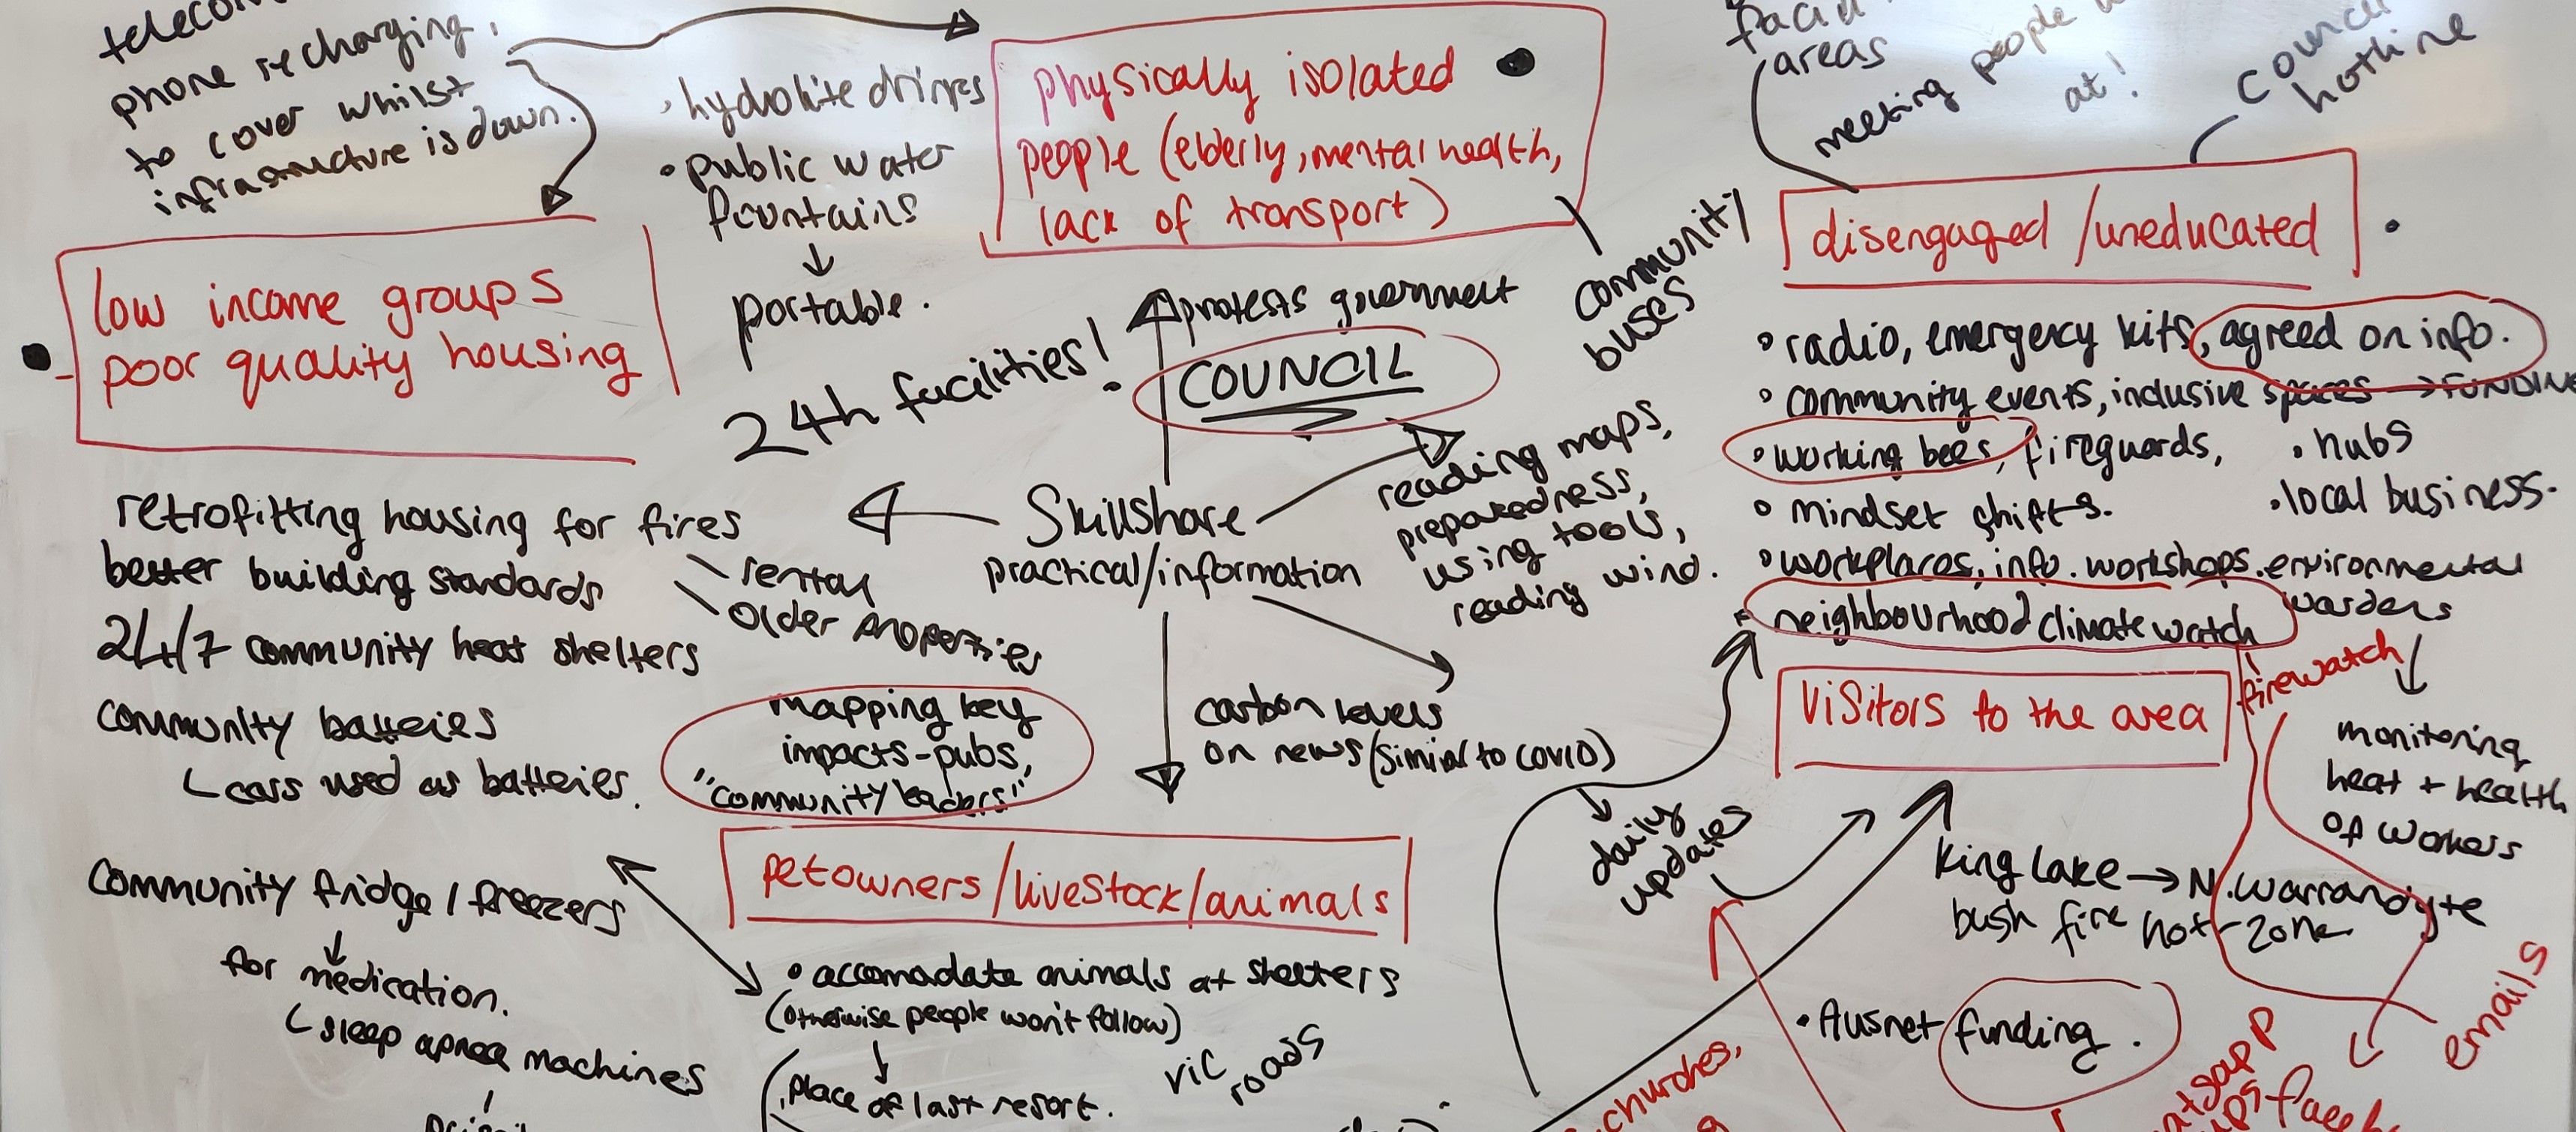 phone recharging,
to cover whilst
infrastructure is down.
• hydrolite drinks
• public water
fountains
↓
portable.
24h facilities!
physically isolated
people (elderly, mental health,
lack of transport)
community
buses
areas
meeting people
at!
hotline
disengaged / uneducated
• radio, emergency kits, agreed on info.
• community events, inclusive spaces → FUNDIN
• working bees, fireguards,
• hubs
• mindset shifts.
• local business.
• workplaces, info. workshops. environmental
wardens
• neighbourhood climate watch
firewatch
monitoring
heat + health
of workers
low income groups
poor quality housing
retrofitting housing for fires
better building standards
rental
older properties
24/7 community heat shelters
community batteries
cars used as batteries.
community fridge / freezers
for medication.
sleep apnea machines
protests government
COUNCIL
Skillshare
practical/information
reading maps,
preparedness,
using tools,
reading wind.
carbon levels
on news (similar to covid)
mapping key
impacts - pubs,
"community leaders"
petowners / livestock / animals
• accomadate animals at shelters
(otherwise people won't follow)
↓
place of last resort.
vic
roads
visitors to the area
daily
updates
King lake → N. Warrandyte
bush fire hot-zone
• Ausnet funding.
churches,
emails